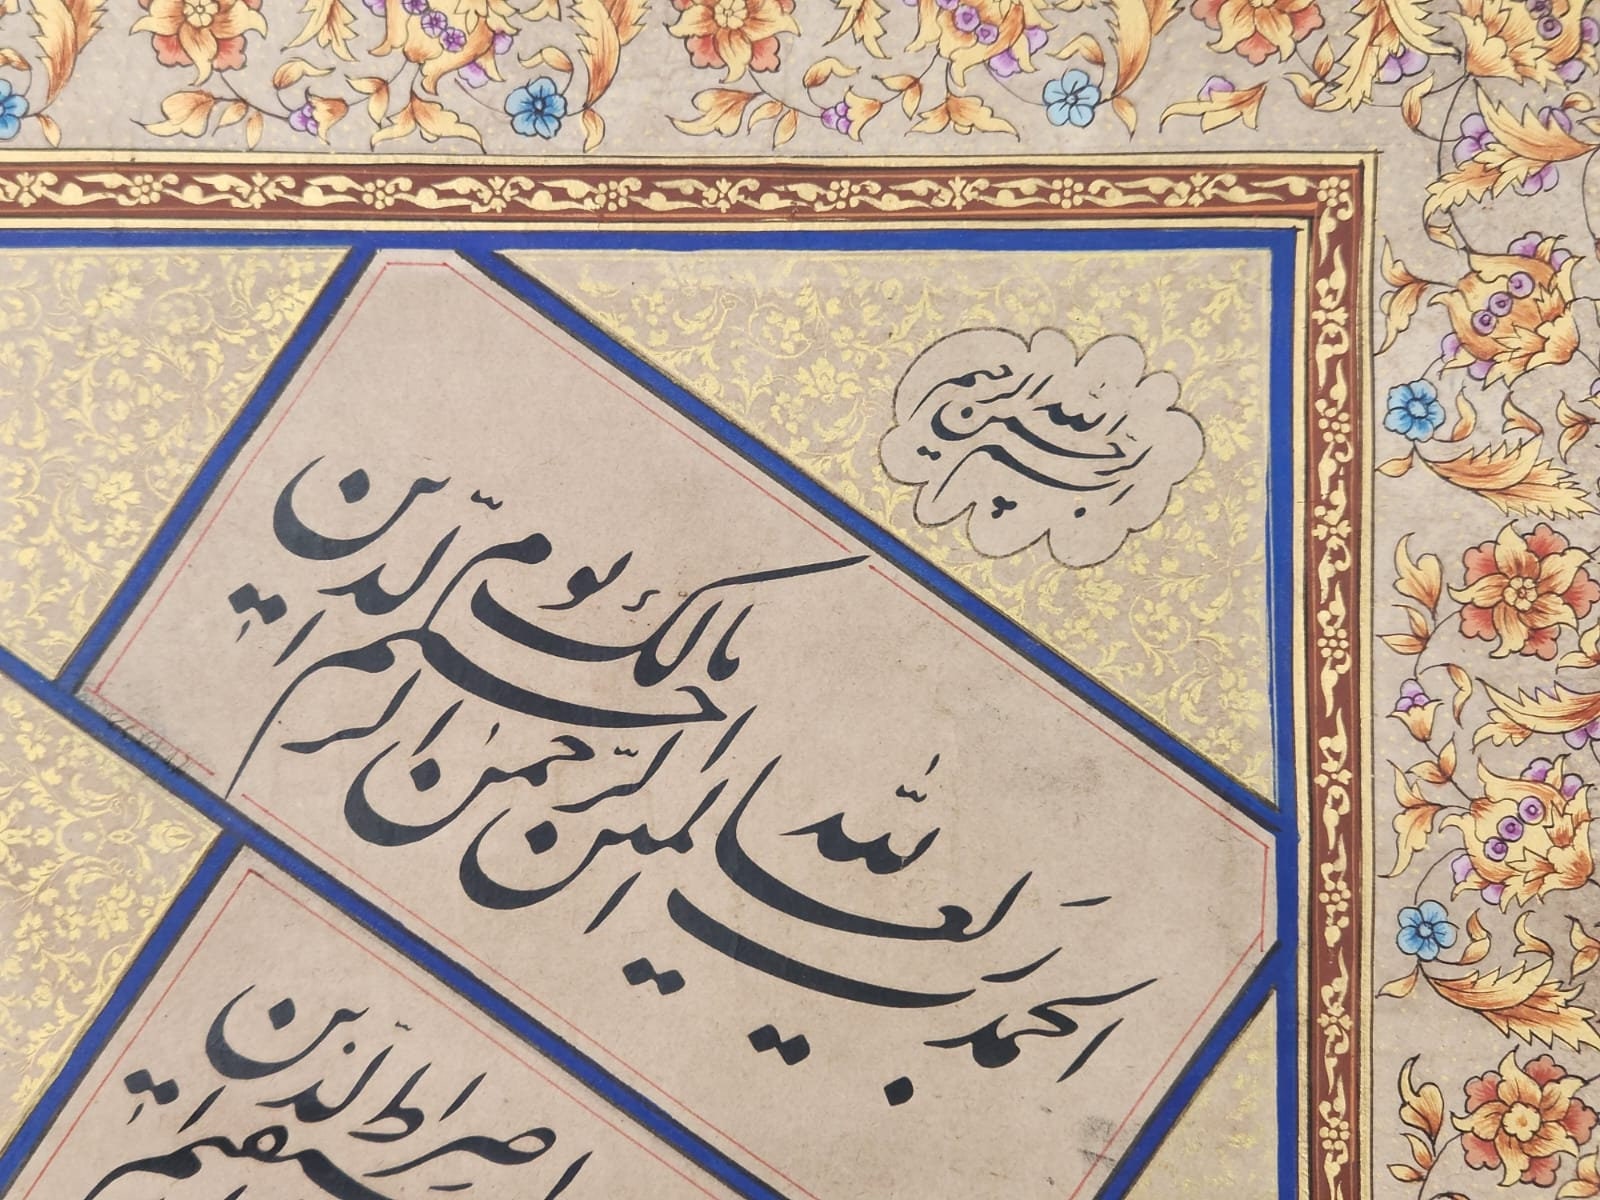 بسم الله الرحمن الرحیم
الحمد لله رب العالمین
الرحمن الرحیم
مالک یوم الدین
صراط الذین